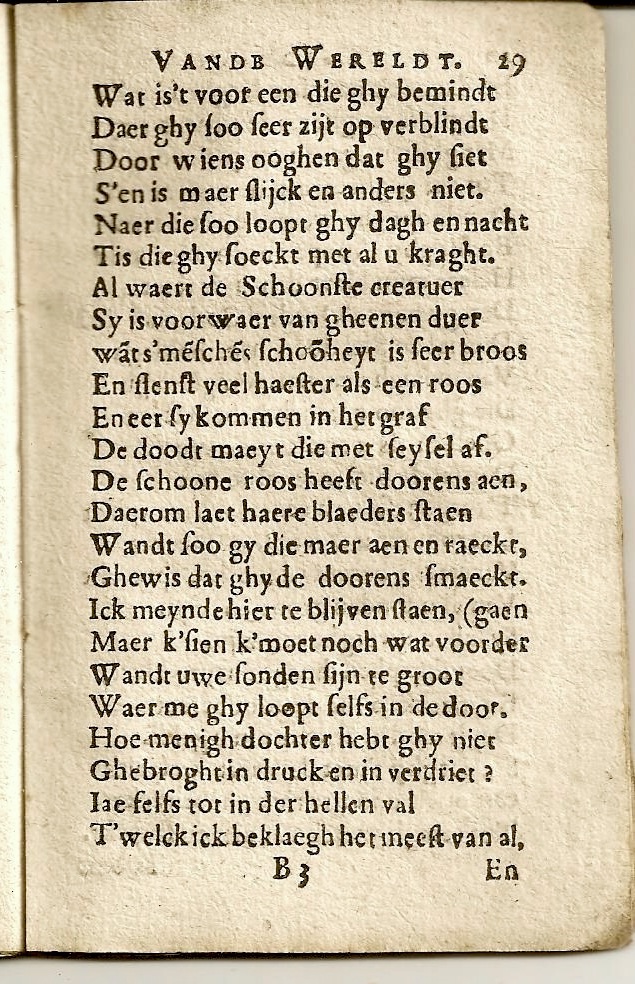 VANDB WERELDT. 29
Wat is't voor een die ghy bemindt
Daer ghy ſoo ſeer zijt op verblindt
Door wiens ooghen dat ghy ſiet
S'en is maer ſlijck en anders niet.
Naer die ſoo loopt ghy dagh en nacht
Tis die ghy ſoeckt met al u kraght.
Al waert de Schoonſte creatuer
Sy is voorwaer van gheenen duer
wāt s'mēſchēs ſchoōheyt is ſeer broos
En ſlenſt veel haeſter als een roos
En eer ſy kommen in het graf
De doodt maeyt die met ſeyſel af.
De ſchoone roos heeft doorens aen,
Daerom laet haere blaeders ſtaen
Wandt ſoo gy die maer aen en raeckt,
Ghewis dat ghy de doorens ſmaeckt.
Ick meynde hier te blijven ſtaen, (gaen
Maer k'ſien k'moet noch wat voorder
Wandt uwe ſonden ſijn te groot
Waer me ghy loopt ſelfs in de doot.
Hoe menigh dochter hebt ghy niet
Ghebroght in druck en in verdriet ?
Iae ſelfs tot in der hellen val
T'welck ick beklaegh het meeſt van al,
B 3 En